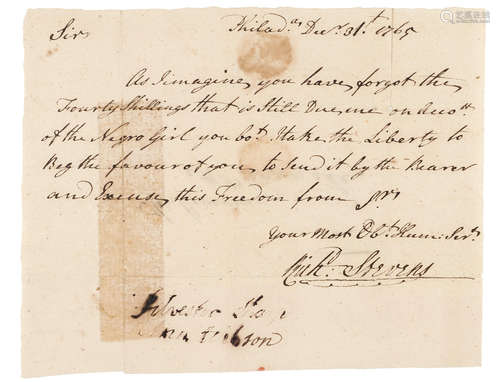 Philad.ᵃ Decʳ 31.ᵗ 1765
Sir
As I imagine, you have forgot the
Fourty Shillings that is Still Due, me on Accoᵗᵗ
of the Negro Girl you boᵗ. I take, the Liberty to
Beg the favour of you, to Send it by the Bearer
and Excuse, this Freedom from Sʳ
Your Most Obᵗ. Hum: Serᵗ
Richᵈ. Stevens
Silvester
son